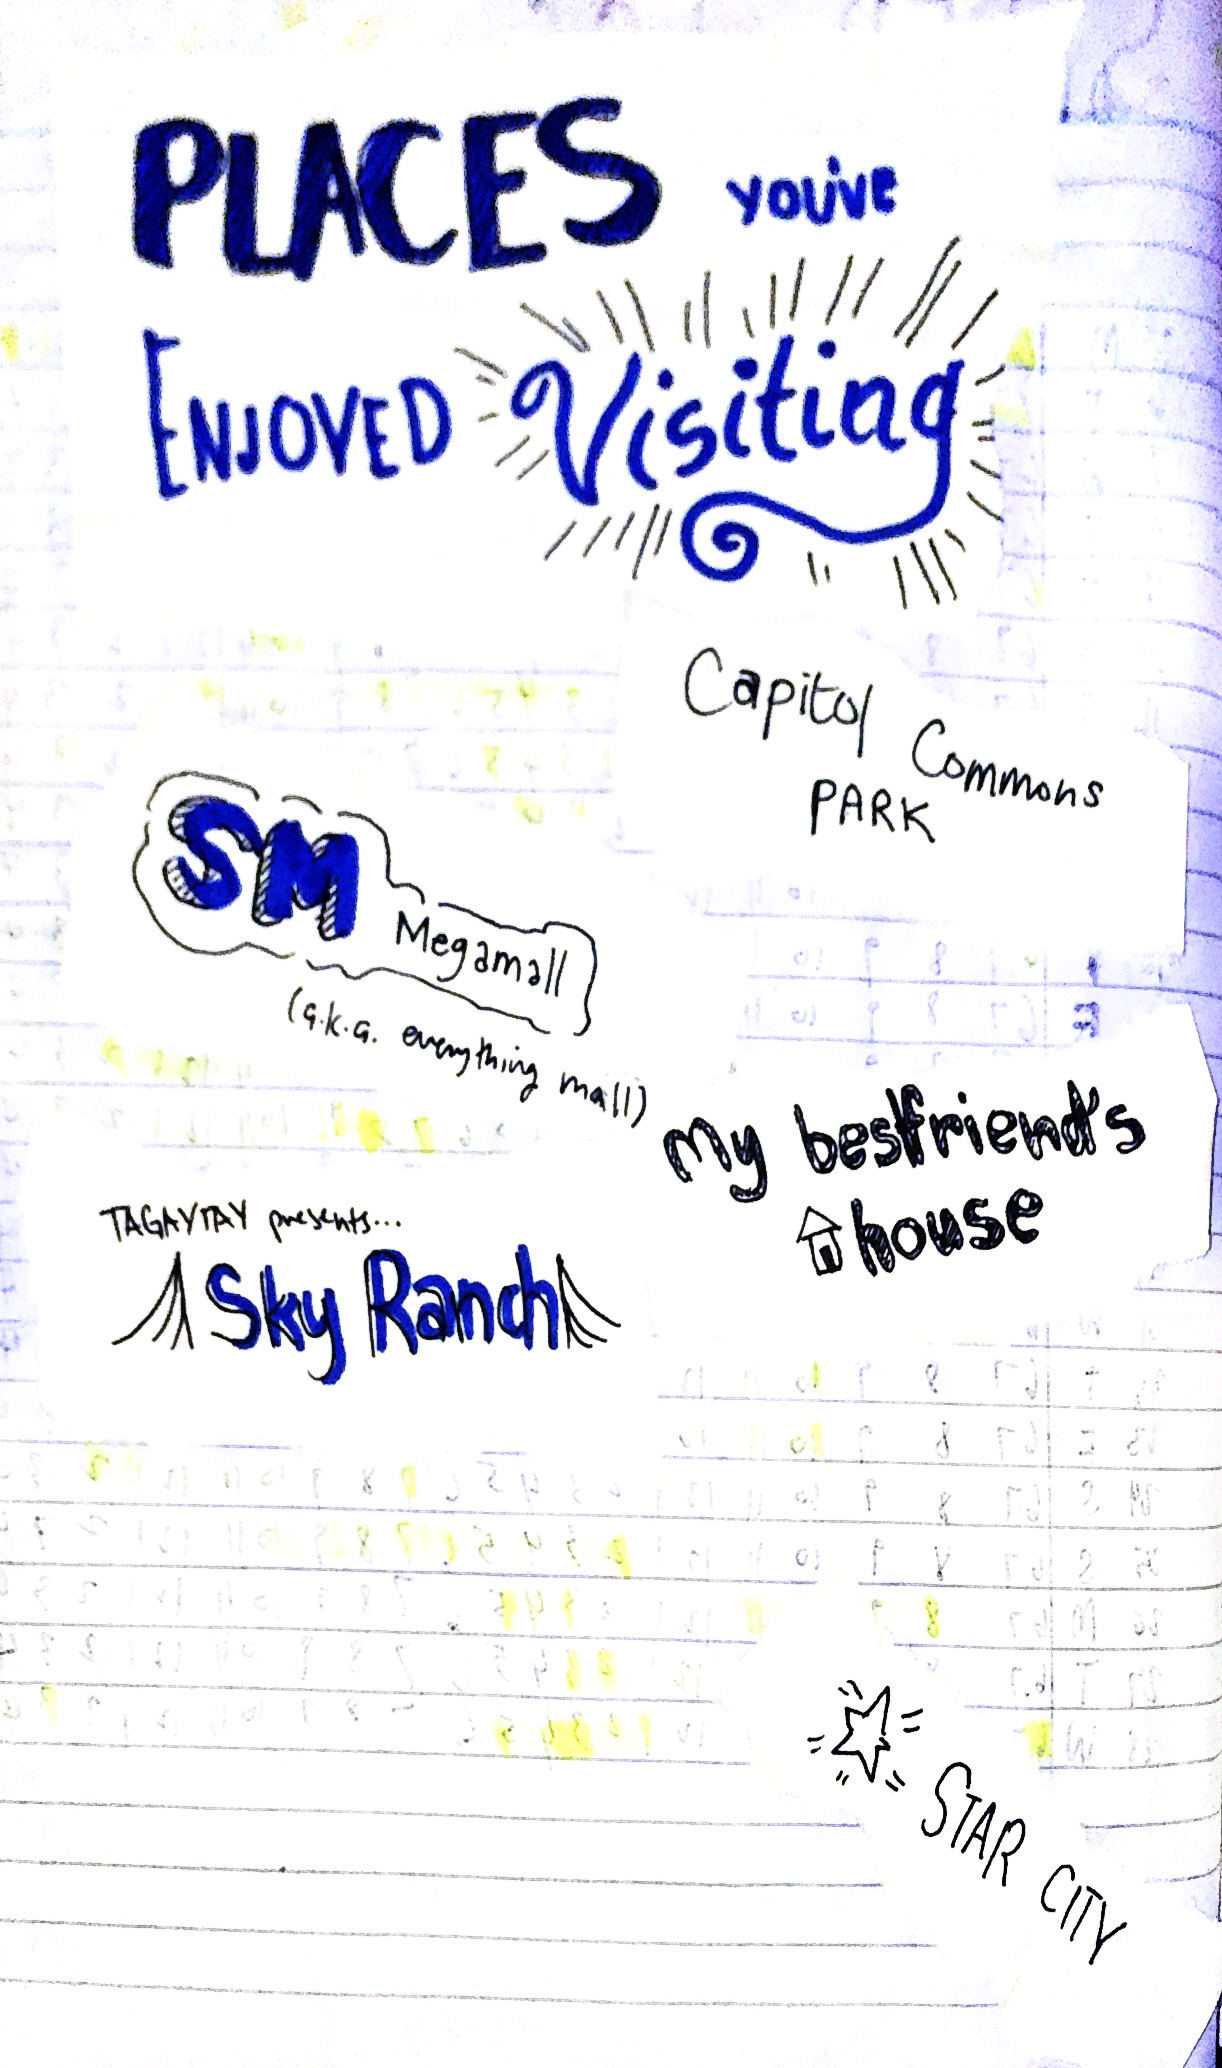 PLACES you've
ENJOYED Visiting
Capitol Commons
PARK
SM Megamall
(a.k.a. everything mall)
my bestfriend's
house
TAGAYTAY presents...
Sky Ranch
STAR CITY